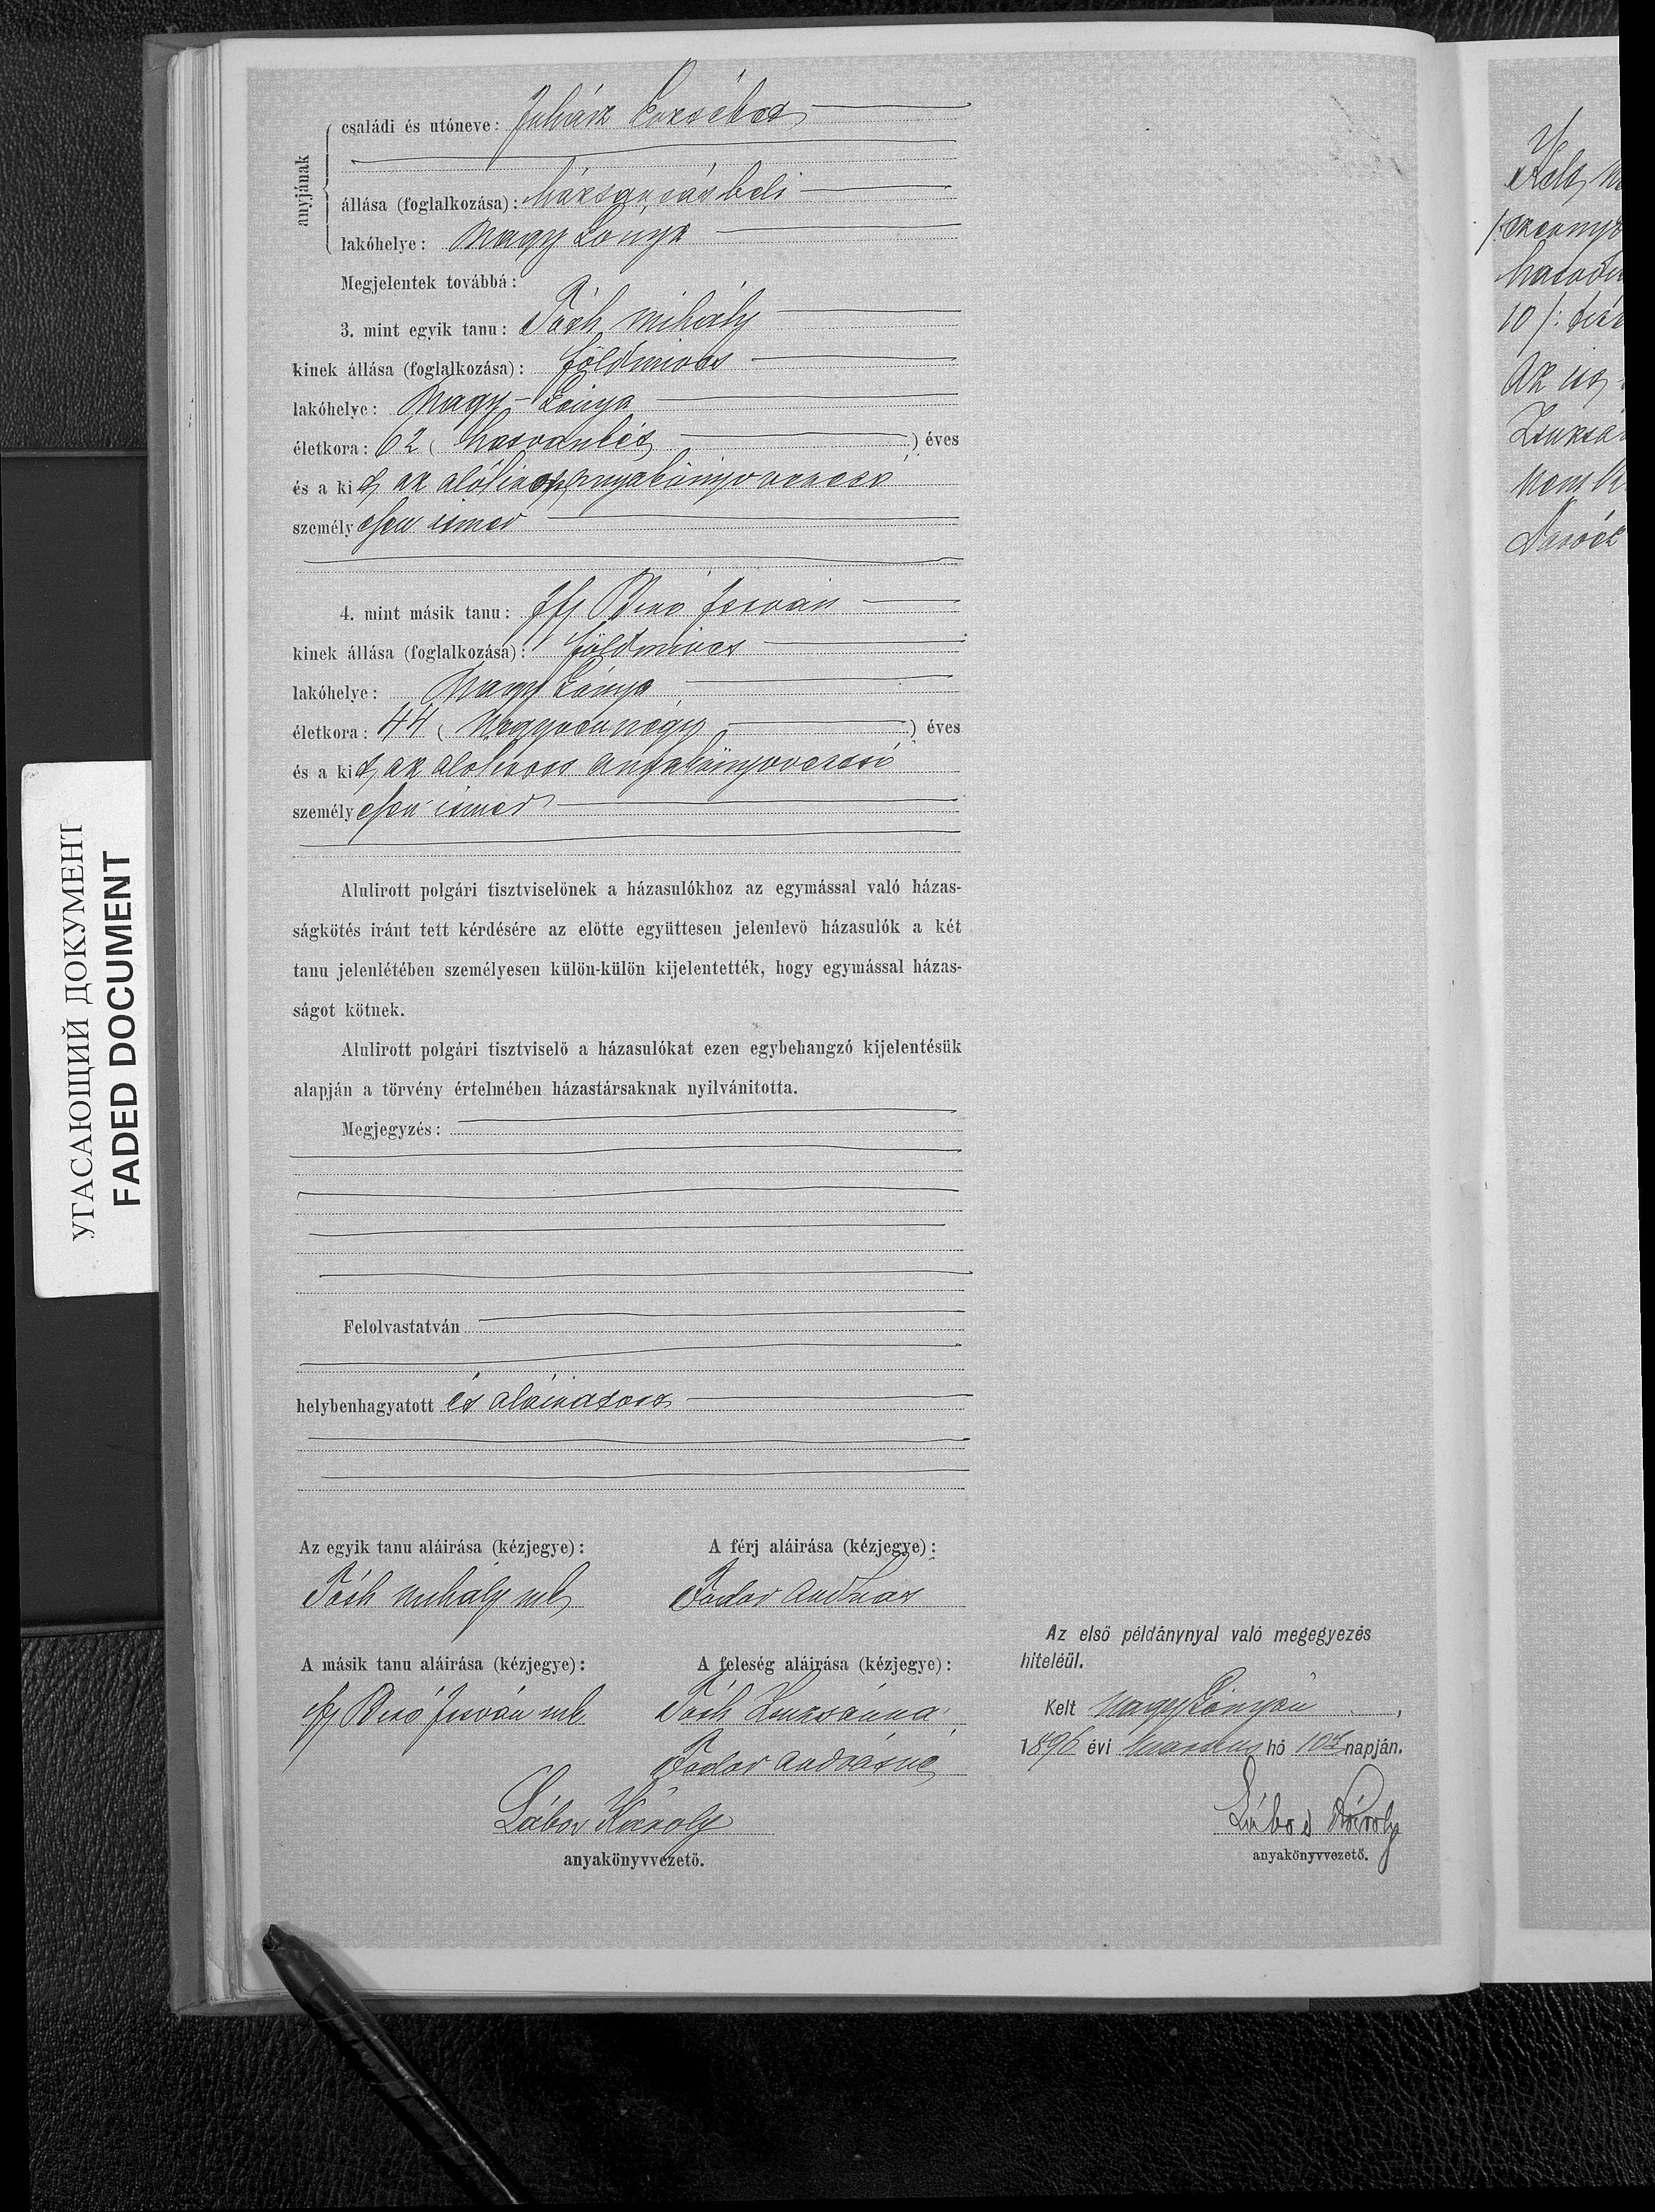 anyjának
családi és utóneve: Juhász Erzsébet
állása (foglalkozása): házsártásbeli
lakóhelye: Nagy Lónya
Megjelentek továbbá:
3. mint egyik tanu: Tóth Mihály
kinek állása (foglalkozása): földmives
lakóhelye: Nagy-Lónya
életkora: 62 (hatvankét) éves
és a kit az alólirott anyakönyvvezető
személyesen ismer
4. mint másik tanu: Ifj Biró István
kinek állása (foglalkozása): földmives
lakóhelye: Nagy Lónya
életkora: 44 (negyvennégy) éves
és a kit az alólirott anyakönyvvezető
személyesen ismer
Alulirott polgári tisztviselönek a házasulókhoz az egymással való házas-
ságkötés iránt tett kérdésére az elötte együttesen jelenlevö házasulók a két
tanu jelenlétében személyesen külön-külön kijelentették, hogy egymással házas-
ságot kötnek.
Alulirott polgári tisztviselö a házasulókat ezen egybehangzó kijelentésük
alapján a törvény értelmében házastársaknak nyilvánitotta.
Megjegyzés:
Felolvastatván
helybenhagyatott és aláiratott
Az egyik tanu aláirása (kézjegye):
Tóth Mihály
A férj aláirása (kézjegye):
Fodor András
A másik tanu aláirása (kézjegye):
ifj Biró István
A feleség aláirása (kézjegye):
Tóth Zsuzsánna
Fodor Andrásné
Lábor Károly
anyakönyvvezetö.
Az elsö példánynyal való megegyezés
hiteléül.
Kelt Nagy Lónyán,
1896 évi Martius hó 10 napján.
Lábor Károly
anyakönyvvezetö.
УГАСАЮЩИЙ ДОКУМЕНТ
FADED DOCUMENT
Kelt
10
Az